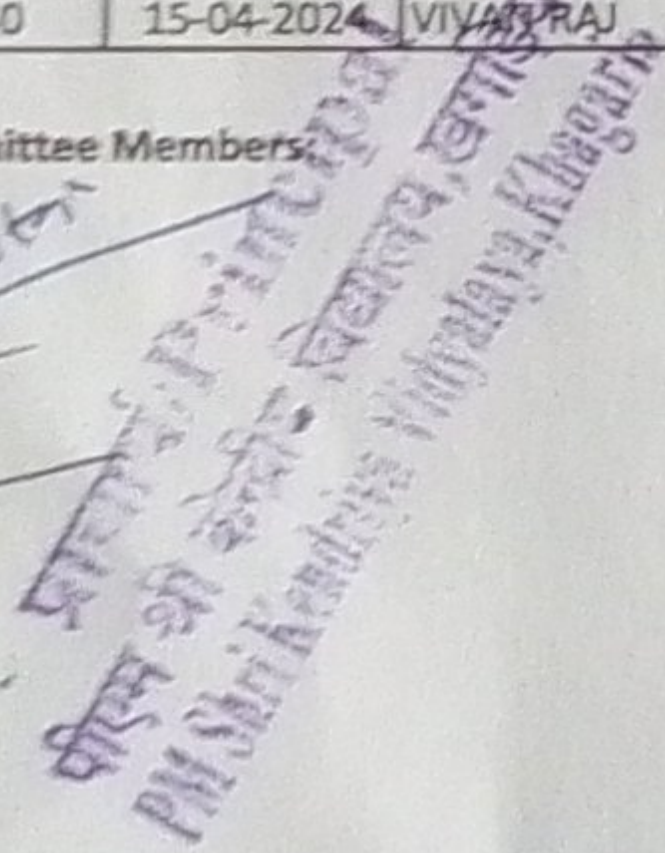 0 15-04-2024 VIVAN RAJ
ittee Members:
प्राचार्य/Principal
पीएम श्री केन्द्रीय विद्यालय, खगड़िया
PM Shri Kendriya Vidyalaya, Khagaria